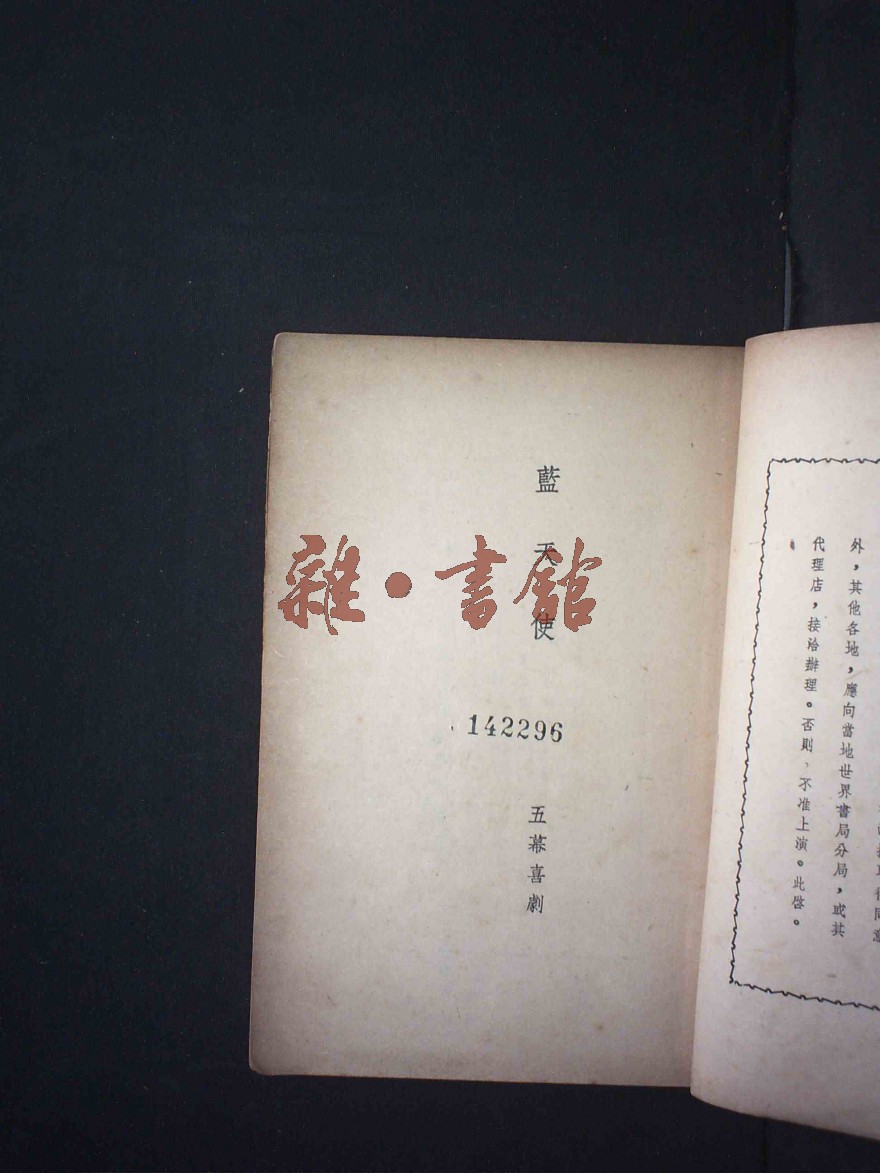 藍天使
142296
五幕喜劇
雜·書館
外，其他各地，應向當地世界書局分局，或其
代理店，接洽辦理。否則、不准上演。此啓。